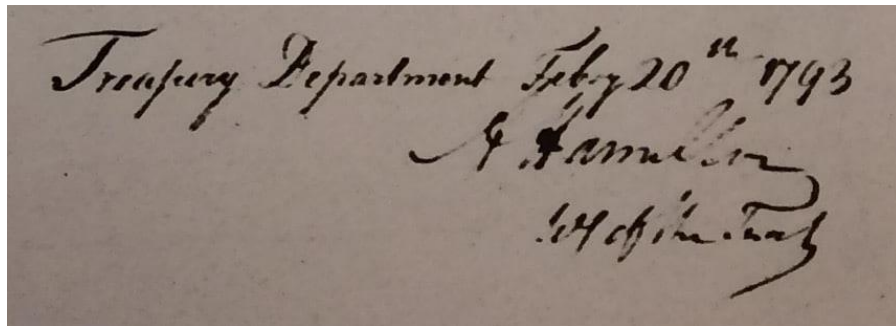 Treasury Department Feby 20th 1793
A Hamilton
Sec'y of the Treas'y